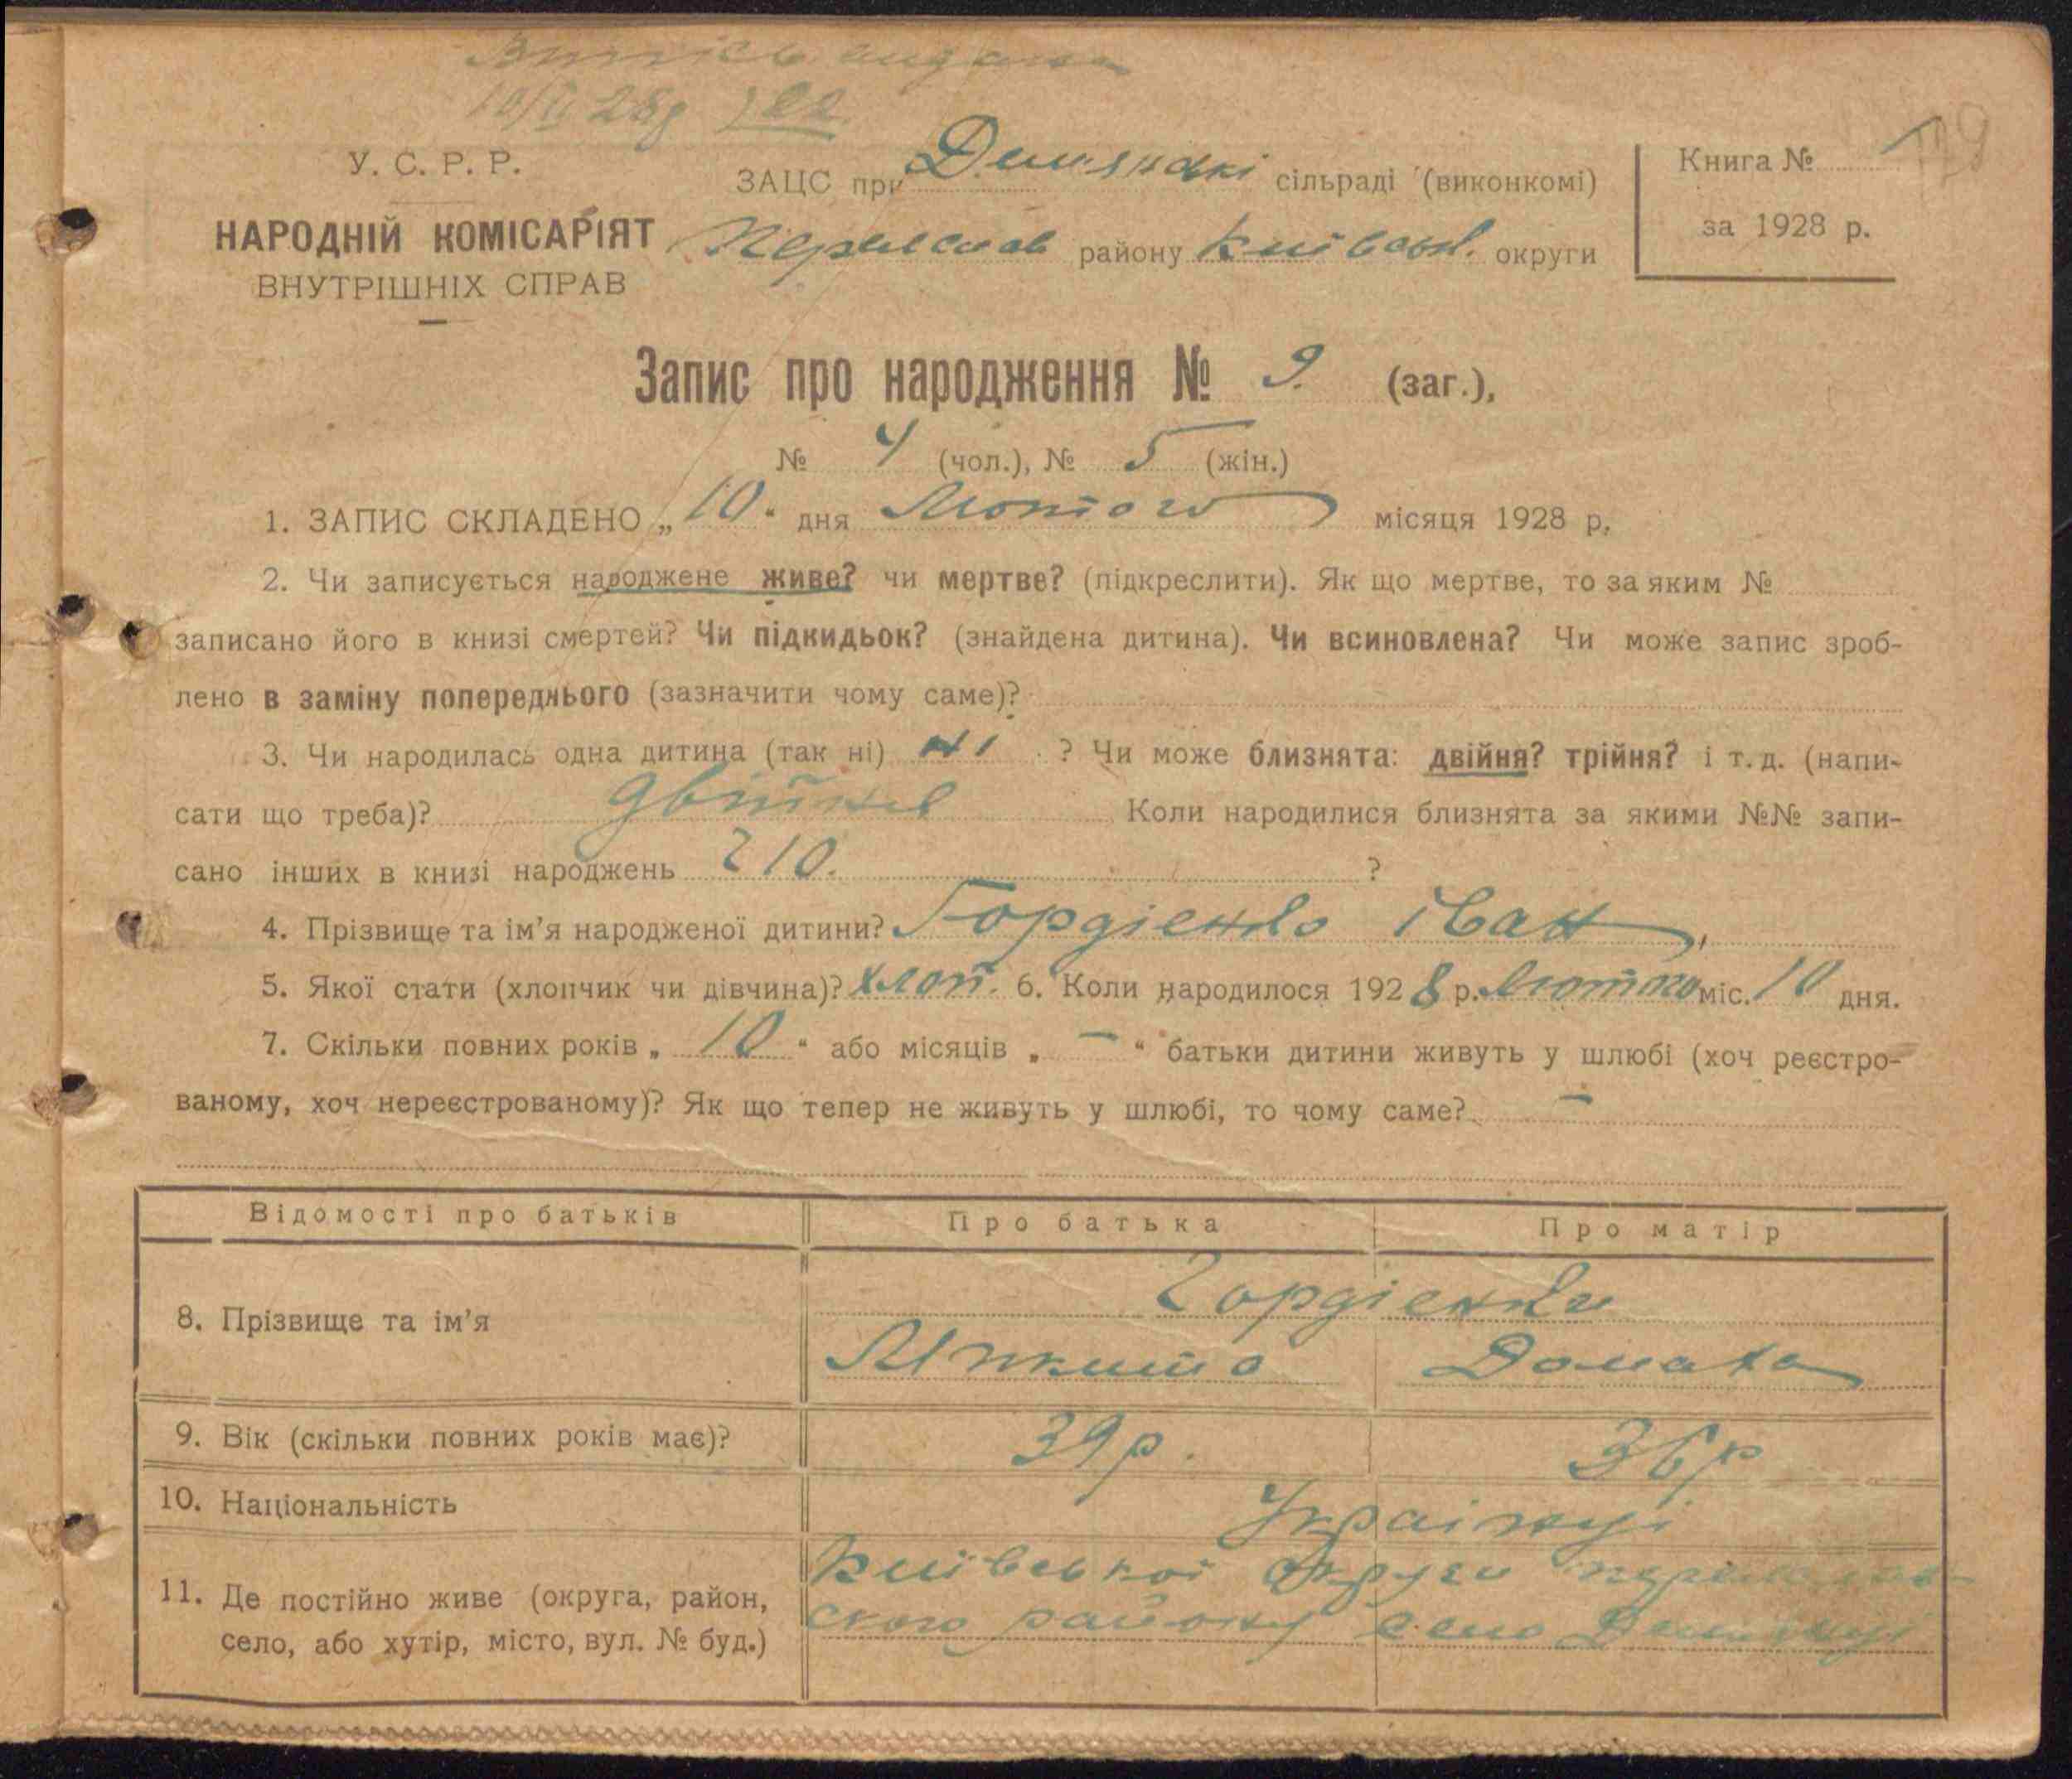 Витпісь видана
10/II 28р
У. С. Р. Р.
НАРОДНІЙ КОМІСАРІЯТ
ВНУТРІШНІХ СПРАВ
ЗАЦС при Дем'янські сільраді (виконкомі)
Переяслав району Київськ. округи
Книга №
за 1928 р.
179
Запис про народження № 9. (заг.),
№ 4 (чол.), № 5 (жін.)
1. ЗАПИС СКЛАДЕНО „10.“ дня Лютого місяця 1928 р.
2. Чи записується народжене живе? чи мертве? (підкреслити). Як що мертве, то за яким №
записано його в книзі смертей? Чи підкидьок? (знайдена дитина). Чи всиновлена? Чи може запис зроб-
лено в заміну попереднього (зазначити чому саме)?
3. Чи народилась одна дитина (так ні) ні ? Чи може близнята: двійня? трійня? і т. д. (напи-
сати що треба)? двійня Коли народилися близнята за якими №№ запи-
сано інших в книзі народжень 10. ?
4. Прізвище та ім'я народженої дитини? Гордієнко Іван,
5. Якої стати (хлопчик чи дівчина)? хлоп. 6. Коли народилося 1928 р. Лютого міс. 10 дня.
7. Скільки повних років „ 10 “ або місяців „ — “ батьки дитини живуть у шлюбі (хоч реєстро-
ваному, хоч нереєстрованому)? Як що тепер не живуть у шлюбі, то чому саме? —
Відомості про батьків Про батька Про матір
8. Прізвище та ім'я Гордієнки
Микита Домаха
9. Вік (скільки повних років має)? 39 р. 36 р
10. Національність Українці
11. Де постійно живе (округа, район,
село, або хутір, місто, вул. № буд.)
Київської округи переяслав
ского району село Дем'янці